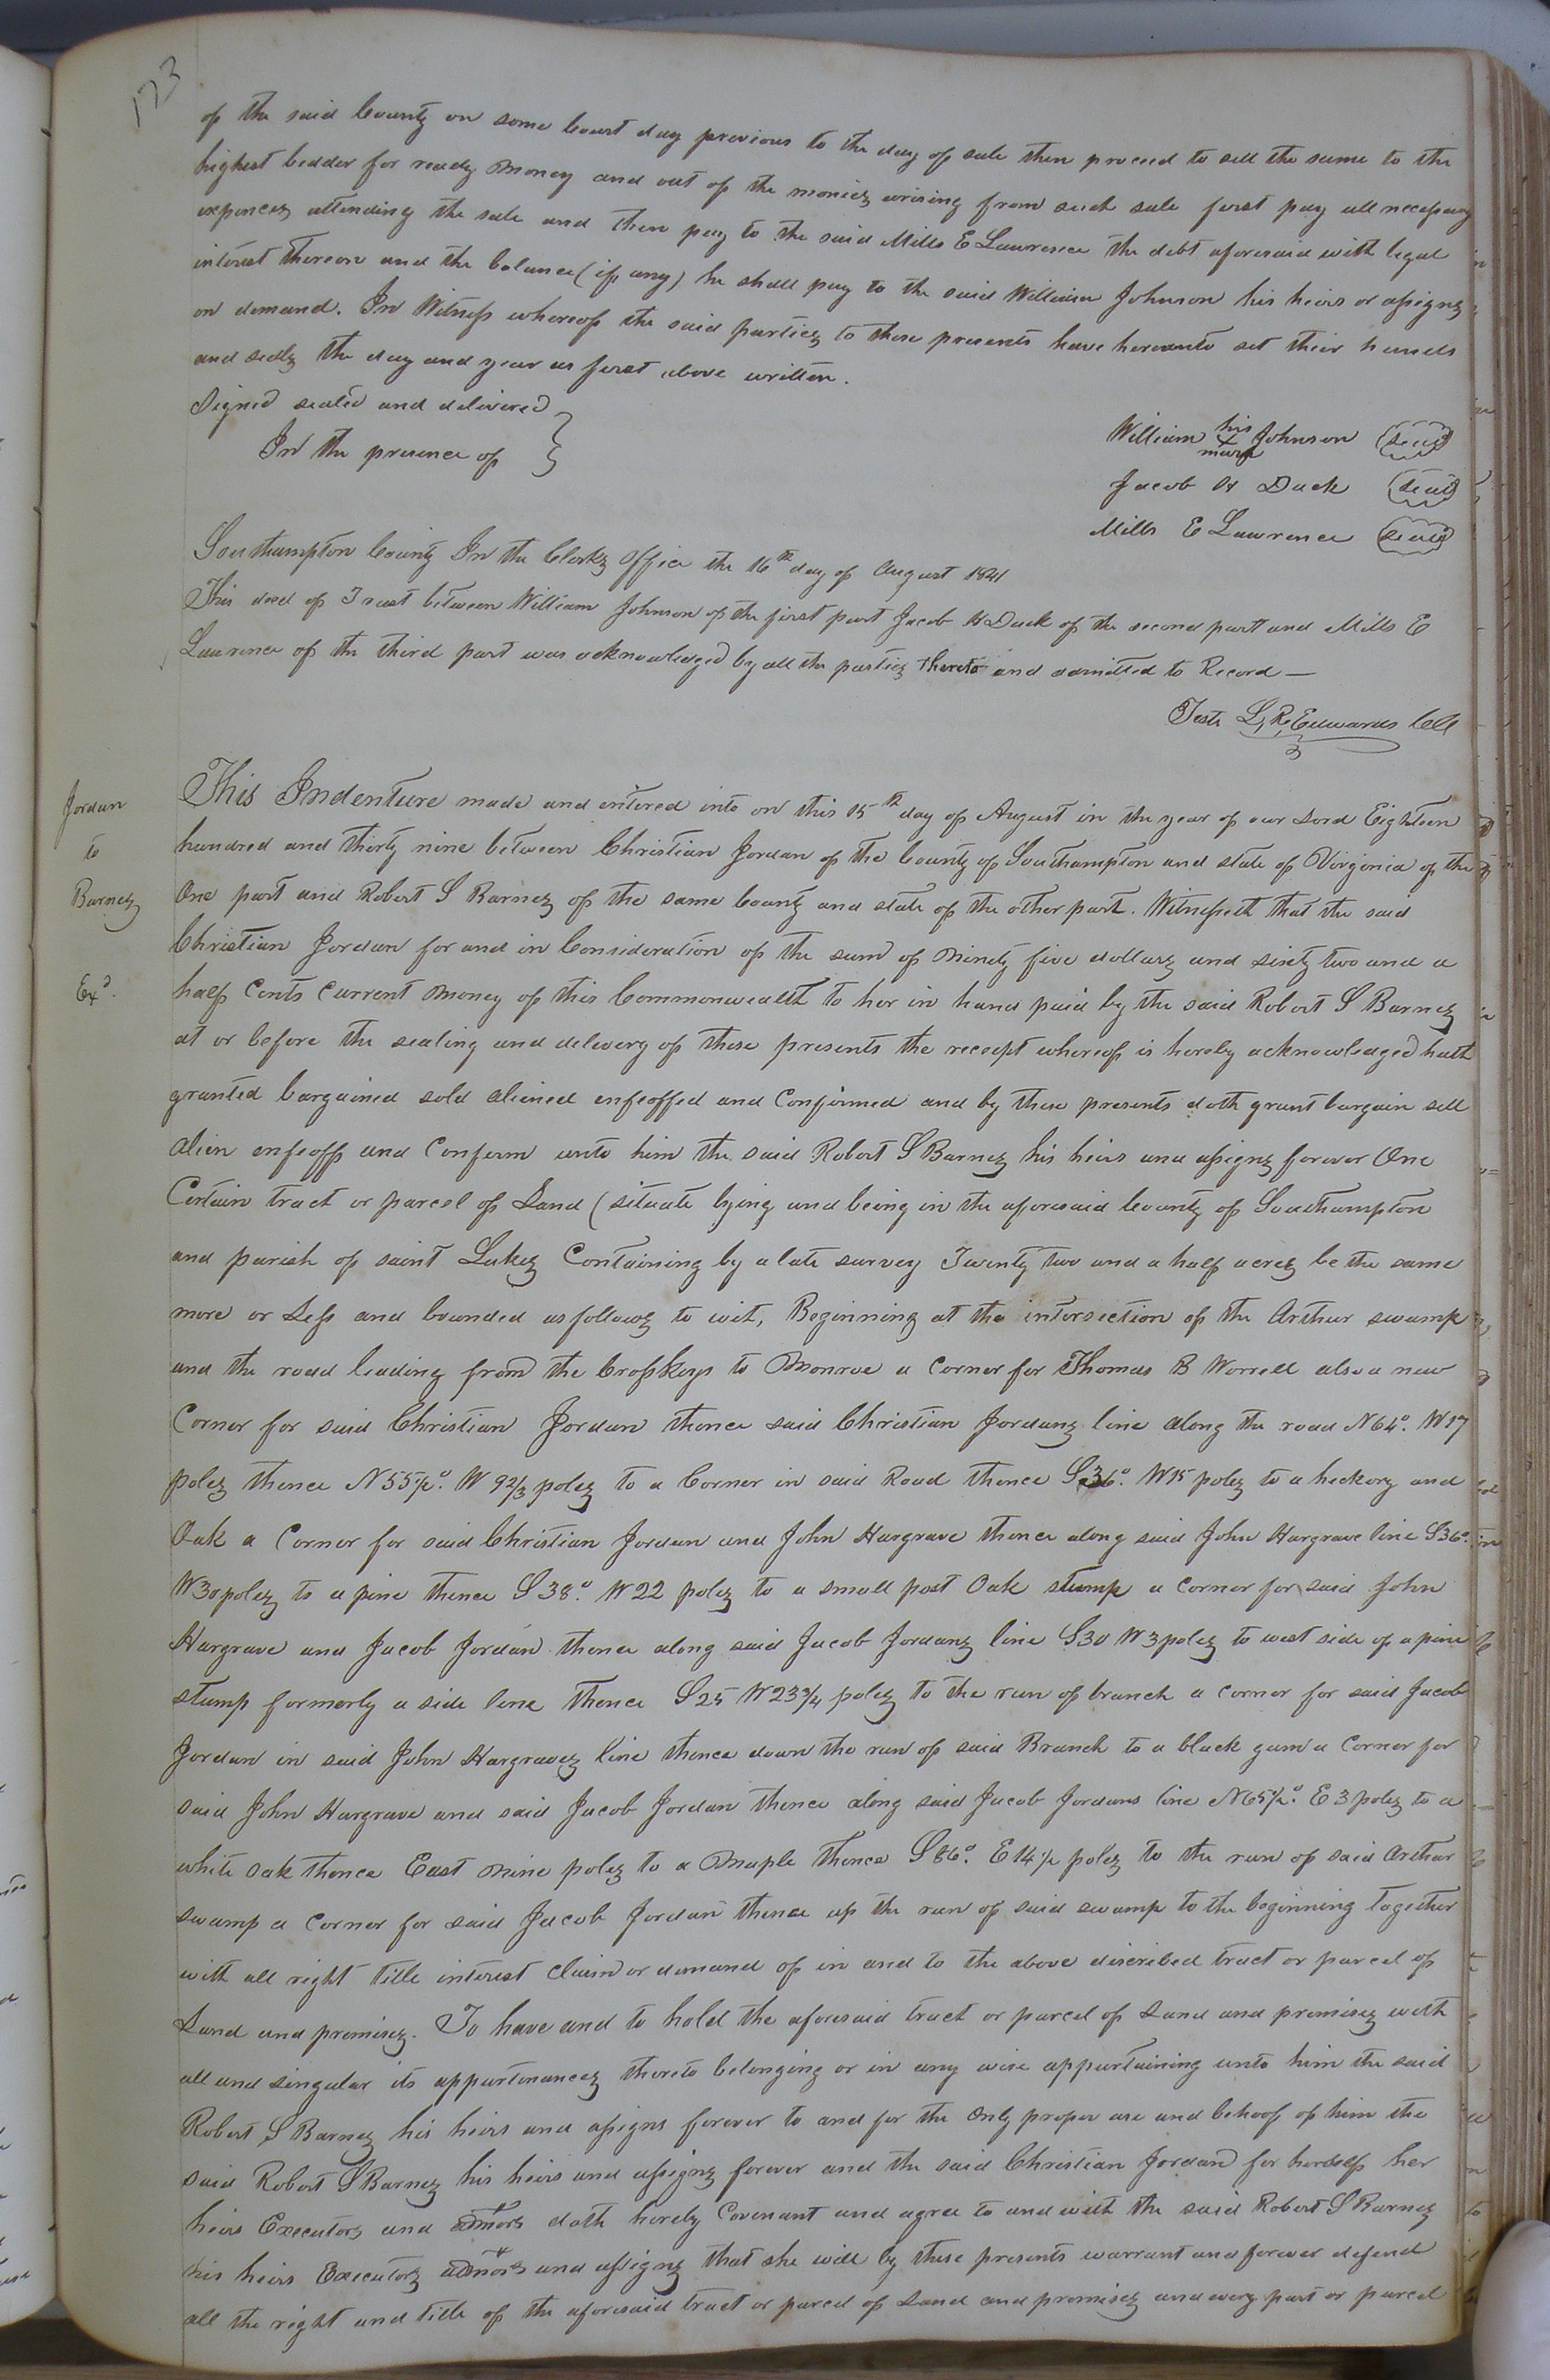 173
of the said County on some Court day previous to the day of sale then proceed to sell the same to the
highest bedder for ready money and out of the moniez arising from such sale first pay all necessary
expencez attending the sale and then pay to the said Mills E Lawrence the debt aforesaid with legal
interest thereon and the balance (if any) he shall pay to the said William Johnson his heirs or assignz
on demand. In Witness whereof the said partiez to these presents have hereunto set their hands
and sealz the day and year as first above written.
Signed sealed and delivered
In the presence of
William his Johnson Seal
x
mark
Jacob H Duck Seal
Mills E Lawrence Seal
Southampton County In the Clerkz Office the 16th day of August 1841
This deed of Trust between William Johnson of the first part Jacob H Duck of the second part and Mills E
Lawrence of the third part was acknowledged by all the partiez thereto and admitted to Record —
Teste L, R, Edwards Clk
Jordan
to
Barnez
Exd.
This Indenture made and entered into on this 15th day of August in the year of our Lord Eighteen
hundred and thirty nine between Christian Jordan of the County of Southampton and state of Virginia of the
One part and Robert S Barnez of the same County and state of the other part. Witnesseth that the said
Christian Jordan for and in Consideration of the sum of Ninety five dollarz and sixty two and a
half Cents Current money of this Commonwealth to her in hand paid by the said Robert S Barnez
at or before the sealing and delivery of these presents the receipt whereof is hereby acknowledged hath
granted bargained sold aliened enfeoffed and Confirmed and by these presents doth grant bargain sell
alien enfeoff and Confirm unto him the said Robert S Barnez his heirs and assignz forever One
Certain tract or parcel of Land (situate lying and being in the aforesaid County of Southampton
and parish of saint Lukez Containing by a late survey Twenty two and a half acrez be the same
more or Less and bounded as followz to wit, Beginning at the intersection of the Arthur swamp
and the road leading from the Crosskeys to Monroe a Corner for Thomas B Worrell also a new
Corner for said Christian Jordan thence said Christian Jordanz line along the road N64°. W17
polez thence N55½°. W 9⅔ polez to a Corner in said Road thence S36°. W15 polez to a heckory and
Oak a Corner for said Christian Jordan and John Hargrave thence along said John Hargrave line S36°.
W30 polez to a pine thence S38°. W22 polez to a small post Oak stump a Corner for said John
Hargrave and Jacob Jordan thence along said Jacob Jordanz line S30 W3 polez to west side of a pine
stump formerly a side line thence S25 W23¾ polez to the run of branch a corner for said Jacob
Jordan in said John Hargravez line thence down the run of said Branch to a black gum a Corner for
said John Hargrave and said Jacob Jordan thence along said Jacob Jordans line N65½°. E3 polez to a
white oak thence East nine polez to a Maple thence S86°. E14½ polez to the run of said Arthur
swamp a corner for said Jacob Jordan thence up the run of said swamp to the beginning together
with all right title interest claim or demand of in and to the above discribed tract or parcel of
Land and premisez. To have and to hold the aforesaid tract or parcel of Land and premisez with
all and singular its appurtenancez thereto belonging or in any wise appurtaining unto him the said
Robert S Barnez his heirs and assigns forever to and for the only proper use and behoof of him the
said Robert S Barnez his heirs and assignz forever and the said Christian Jordan for herself her
heirs Executors and admors doth hereby Covenant and agree to and with the said Robert S Barnez
his heirs Executorz admors and assignz that she will by these presents warrant and forever defend
all the right and title of the aforesaid tract or parcel of Land and premisez and every part or parcel